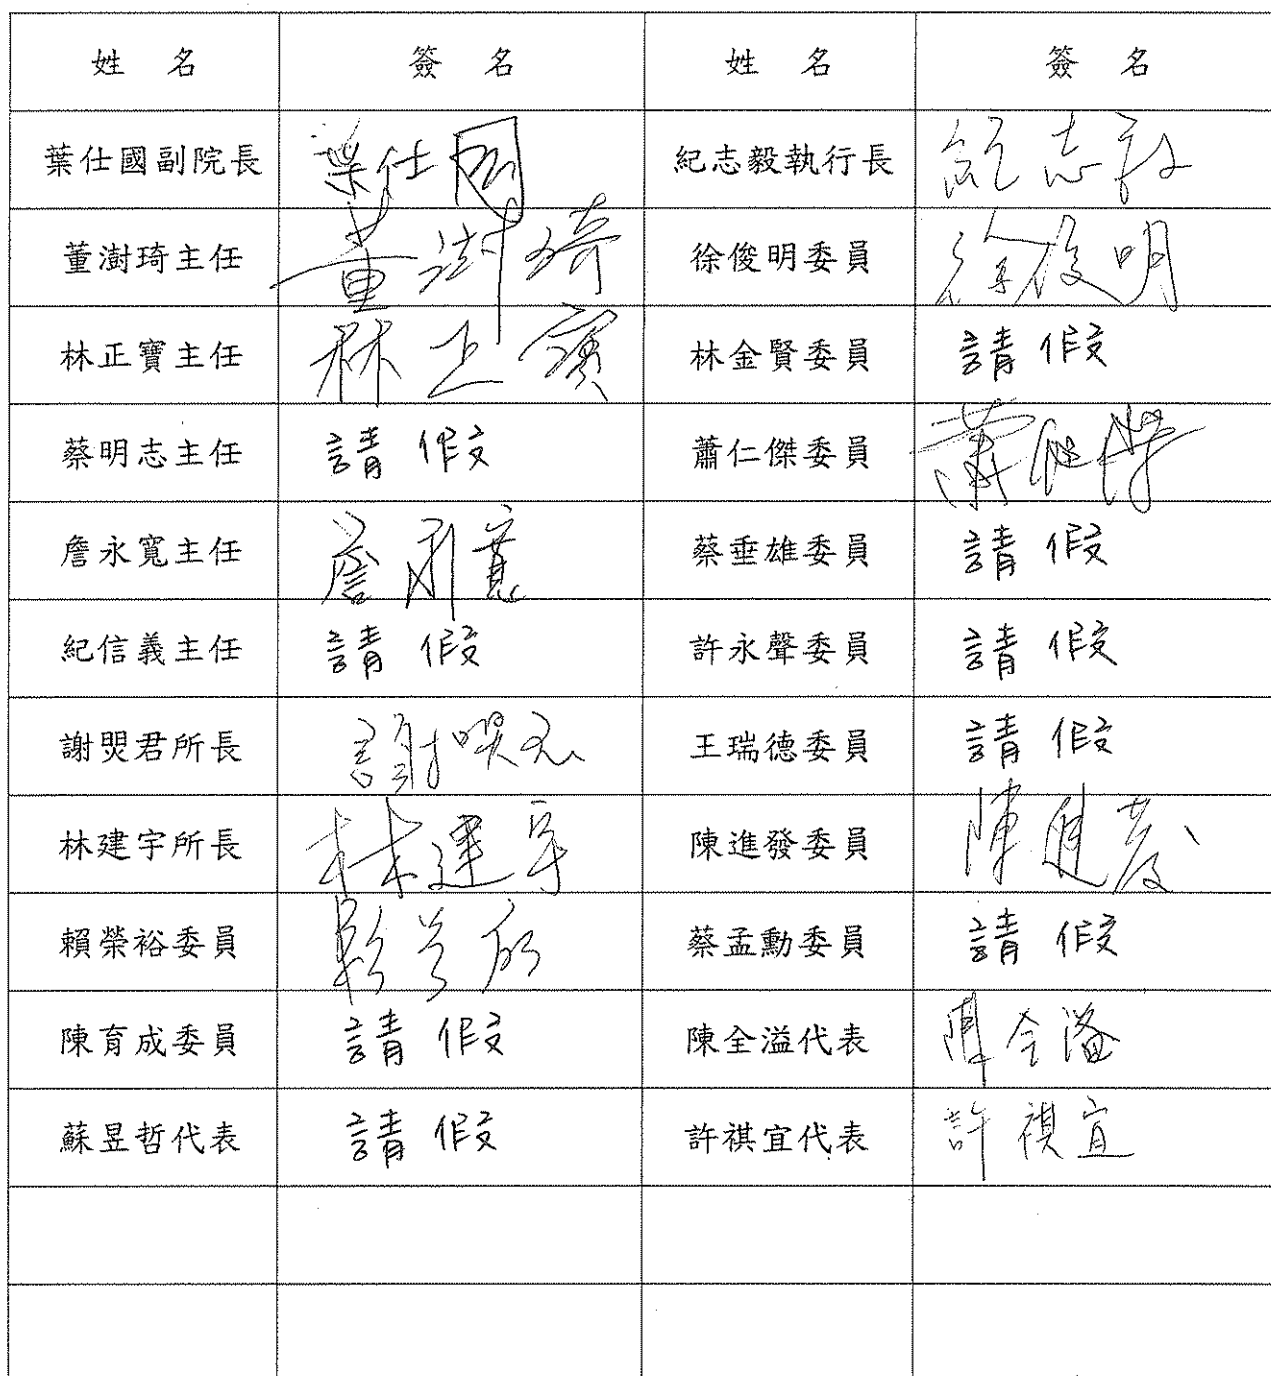 姓 名 簽 名 姓 名 簽 名
葉仕國副院長 葉仕國 紀志毅執行長 紀志毅
董澍琦主任 董澍琦 徐俊明委員 徐俊明
林正寶主任 林正寶 林金賢委員 請假
蔡明志主任 請假 蕭仁傑委員 蕭仁傑
詹永寬主任 詹永寬 蔡垂雄委員 請假
紀信義主任 請假 許永聲委員 請假
謝焸君所長 謝焸君 王瑞德委員 請假
林建宇所長 林建宇 陳進發委員 陳進發
賴榮裕委員 蔡孟勳委員 請假
陳育成委員 請假 陳全溢代表 陳全溢
蘇昱哲代表 請假 許祺宜代表 許祺宜